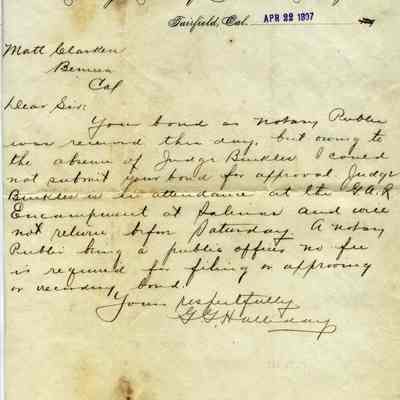 Fairfield, Cal. APR 22 1897
Matt Clarken
Benicia
Cal
Dear Sir:
Your bond as Notary Public
was received this day, but owing to
the absence of Judge Buckles I could
not submit your bond for approval. Judge
Buckles is in attendance at the G.A.R
Encampment at Salinas and will
not return before Saturday. A notary
Public being a public officer no fee
is required for filing or approving
or recording bond.
Yours respectfully
G.G. Halliday